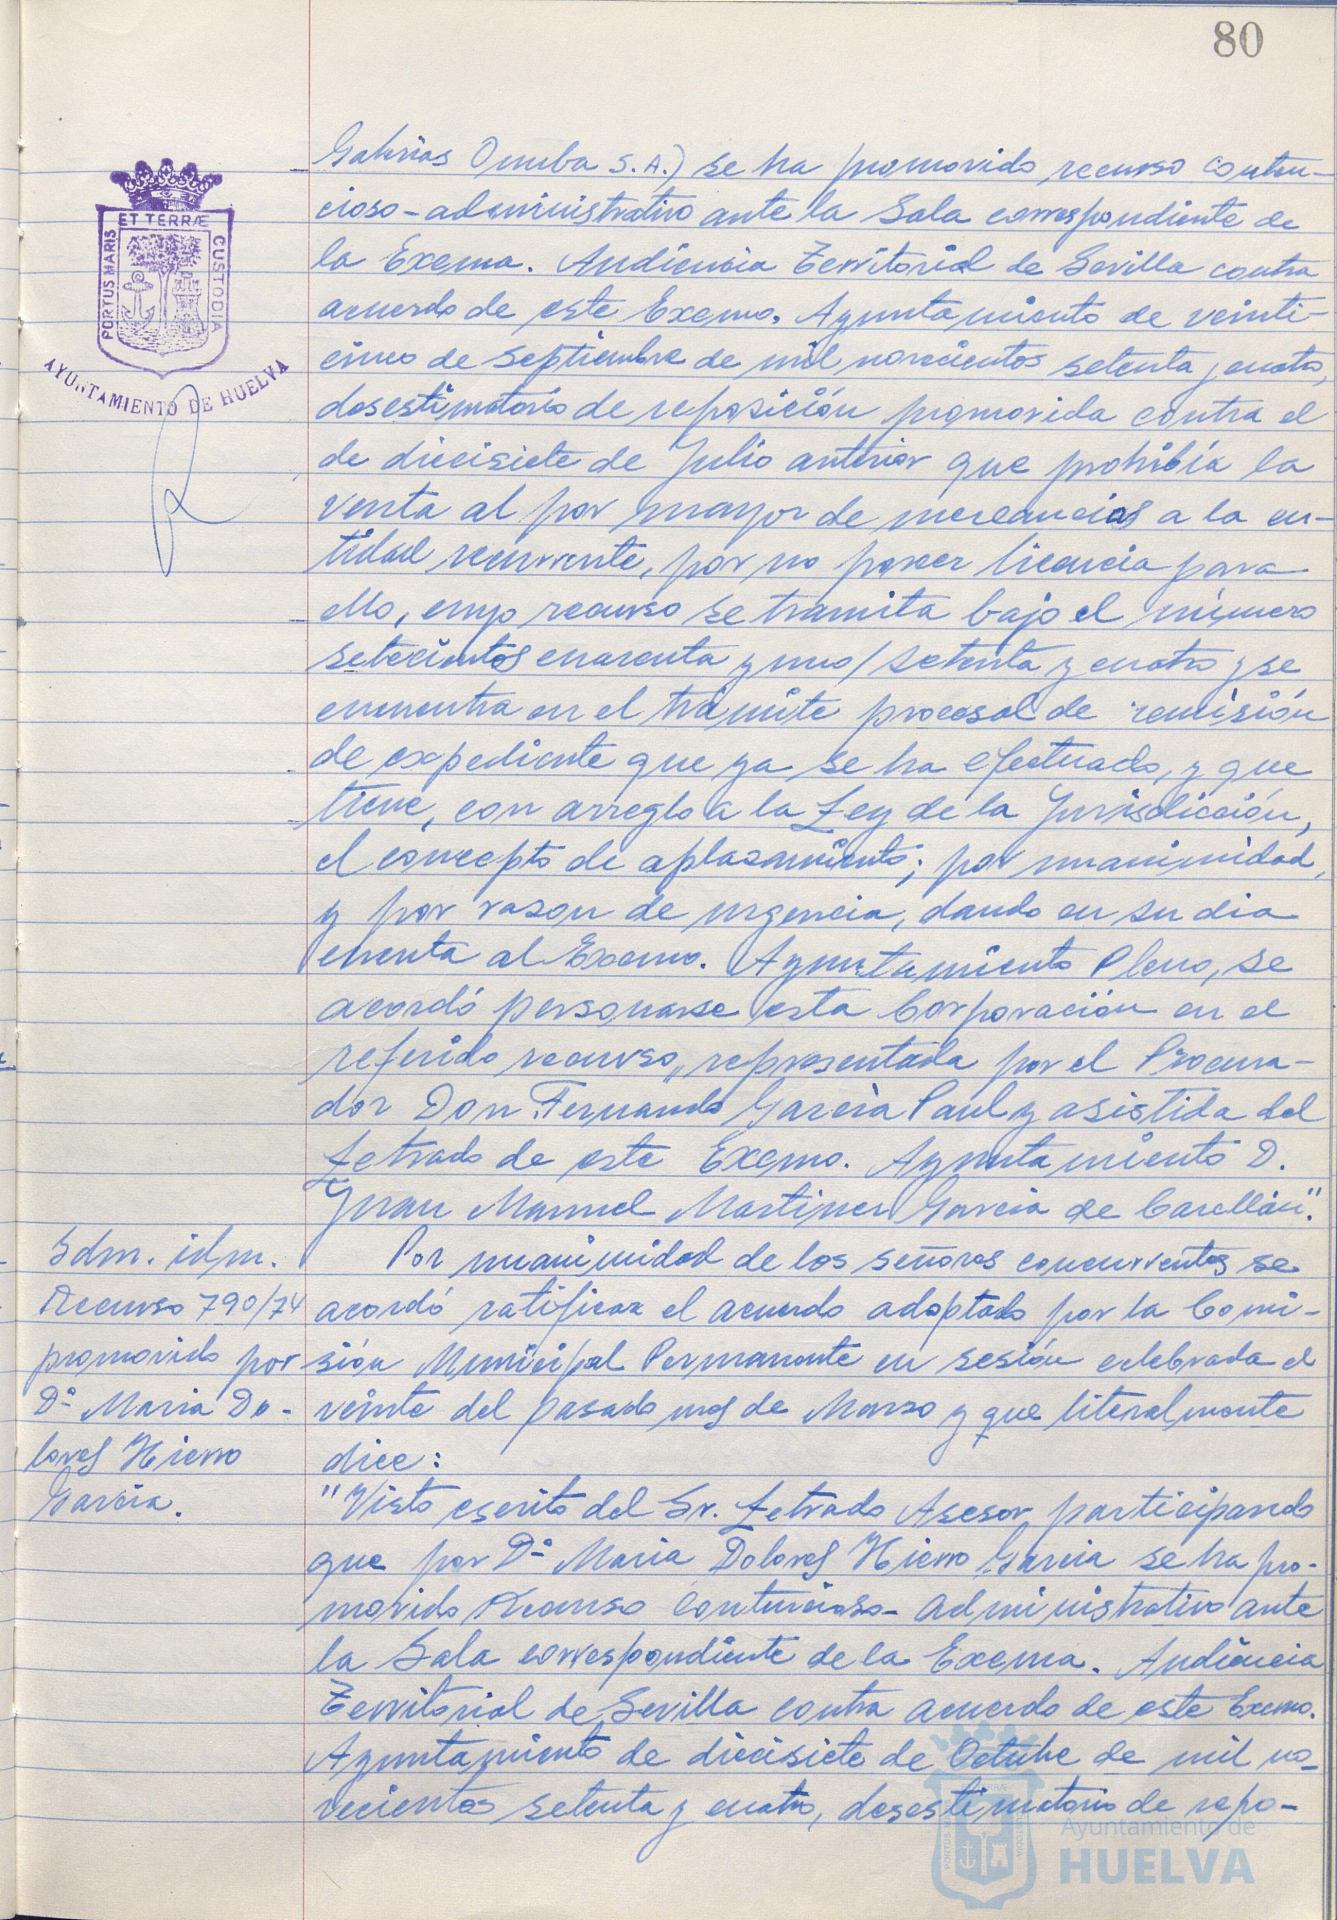 80
ET TERRÆ
PORTUS MARIS
CUSTODIA
AYUNTAMIENTO DE HUELVA
Galerías Onuba S.A.) se ha promovido recurso conten-
cioso-administrativo ante la Sala correspondiente de
la Excma. Audiencia Territorial de Sevilla contra
acuerdo de este Excmo. Ayuntamiento de veinti-
cinco de septiembre de mil novecientos setenta y cuatro,
desestimatorio de reposición promovida contra el
de diecisiete de Julio anterior que prohibía la
venta al por mayor de mercancías a la en-
tidad recurrente, por no poseer licencia para
ello, cuyo recurso se tramita bajo el número
setecientos cuarenta y uno/setenta y cuatro y se
encuentra en el trámite procesal de remisión
de expediente que ya se ha efectuado, y que
tiene, con arreglo a la Ley de la Jurisdicción,
el concepto de aplazamiento; por unanimidad,
y por razon de urgencia, dando en su dia
cuenta al Excmo. Ayuntamiento Pleno, se
acordó personarse esta Corporación en el
referido recurso, representada por el Procura-
dor Don Fernando García Paul y asistida del
Letrado de este Excmo. Ayuntamiento D.
Juan Manuel Martinez Garcia de Carellán".
Idm. idm.
Recurso 790/74
promovido por
Dª Maria Do-
lores Hierro
García.
Por unanimidad de los señores concurrentes se
acordó ratificar el acuerdo adoptado por la Comi-
sión Municipal Permanente en sesión celebrada el
veinte del pasado mes de Marzo y que literalmente
dice:
"Visto escrito del Sr. Letrado Asesor participando
que por Dª Maria Dolores Hierro Garcia se ha pro-
movido Recurso Contencioso-Administrativo ante
la Sala correspondiente de la Excma. Audiencia
Territorial de Sevilla contra acuerdo de este Excmo.
Ayuntamiento de diecisiete de Octubre de mil no-
vecientos setenta y cuatro, desestimatorio de repo-
Ayuntamiento de
HUELVA